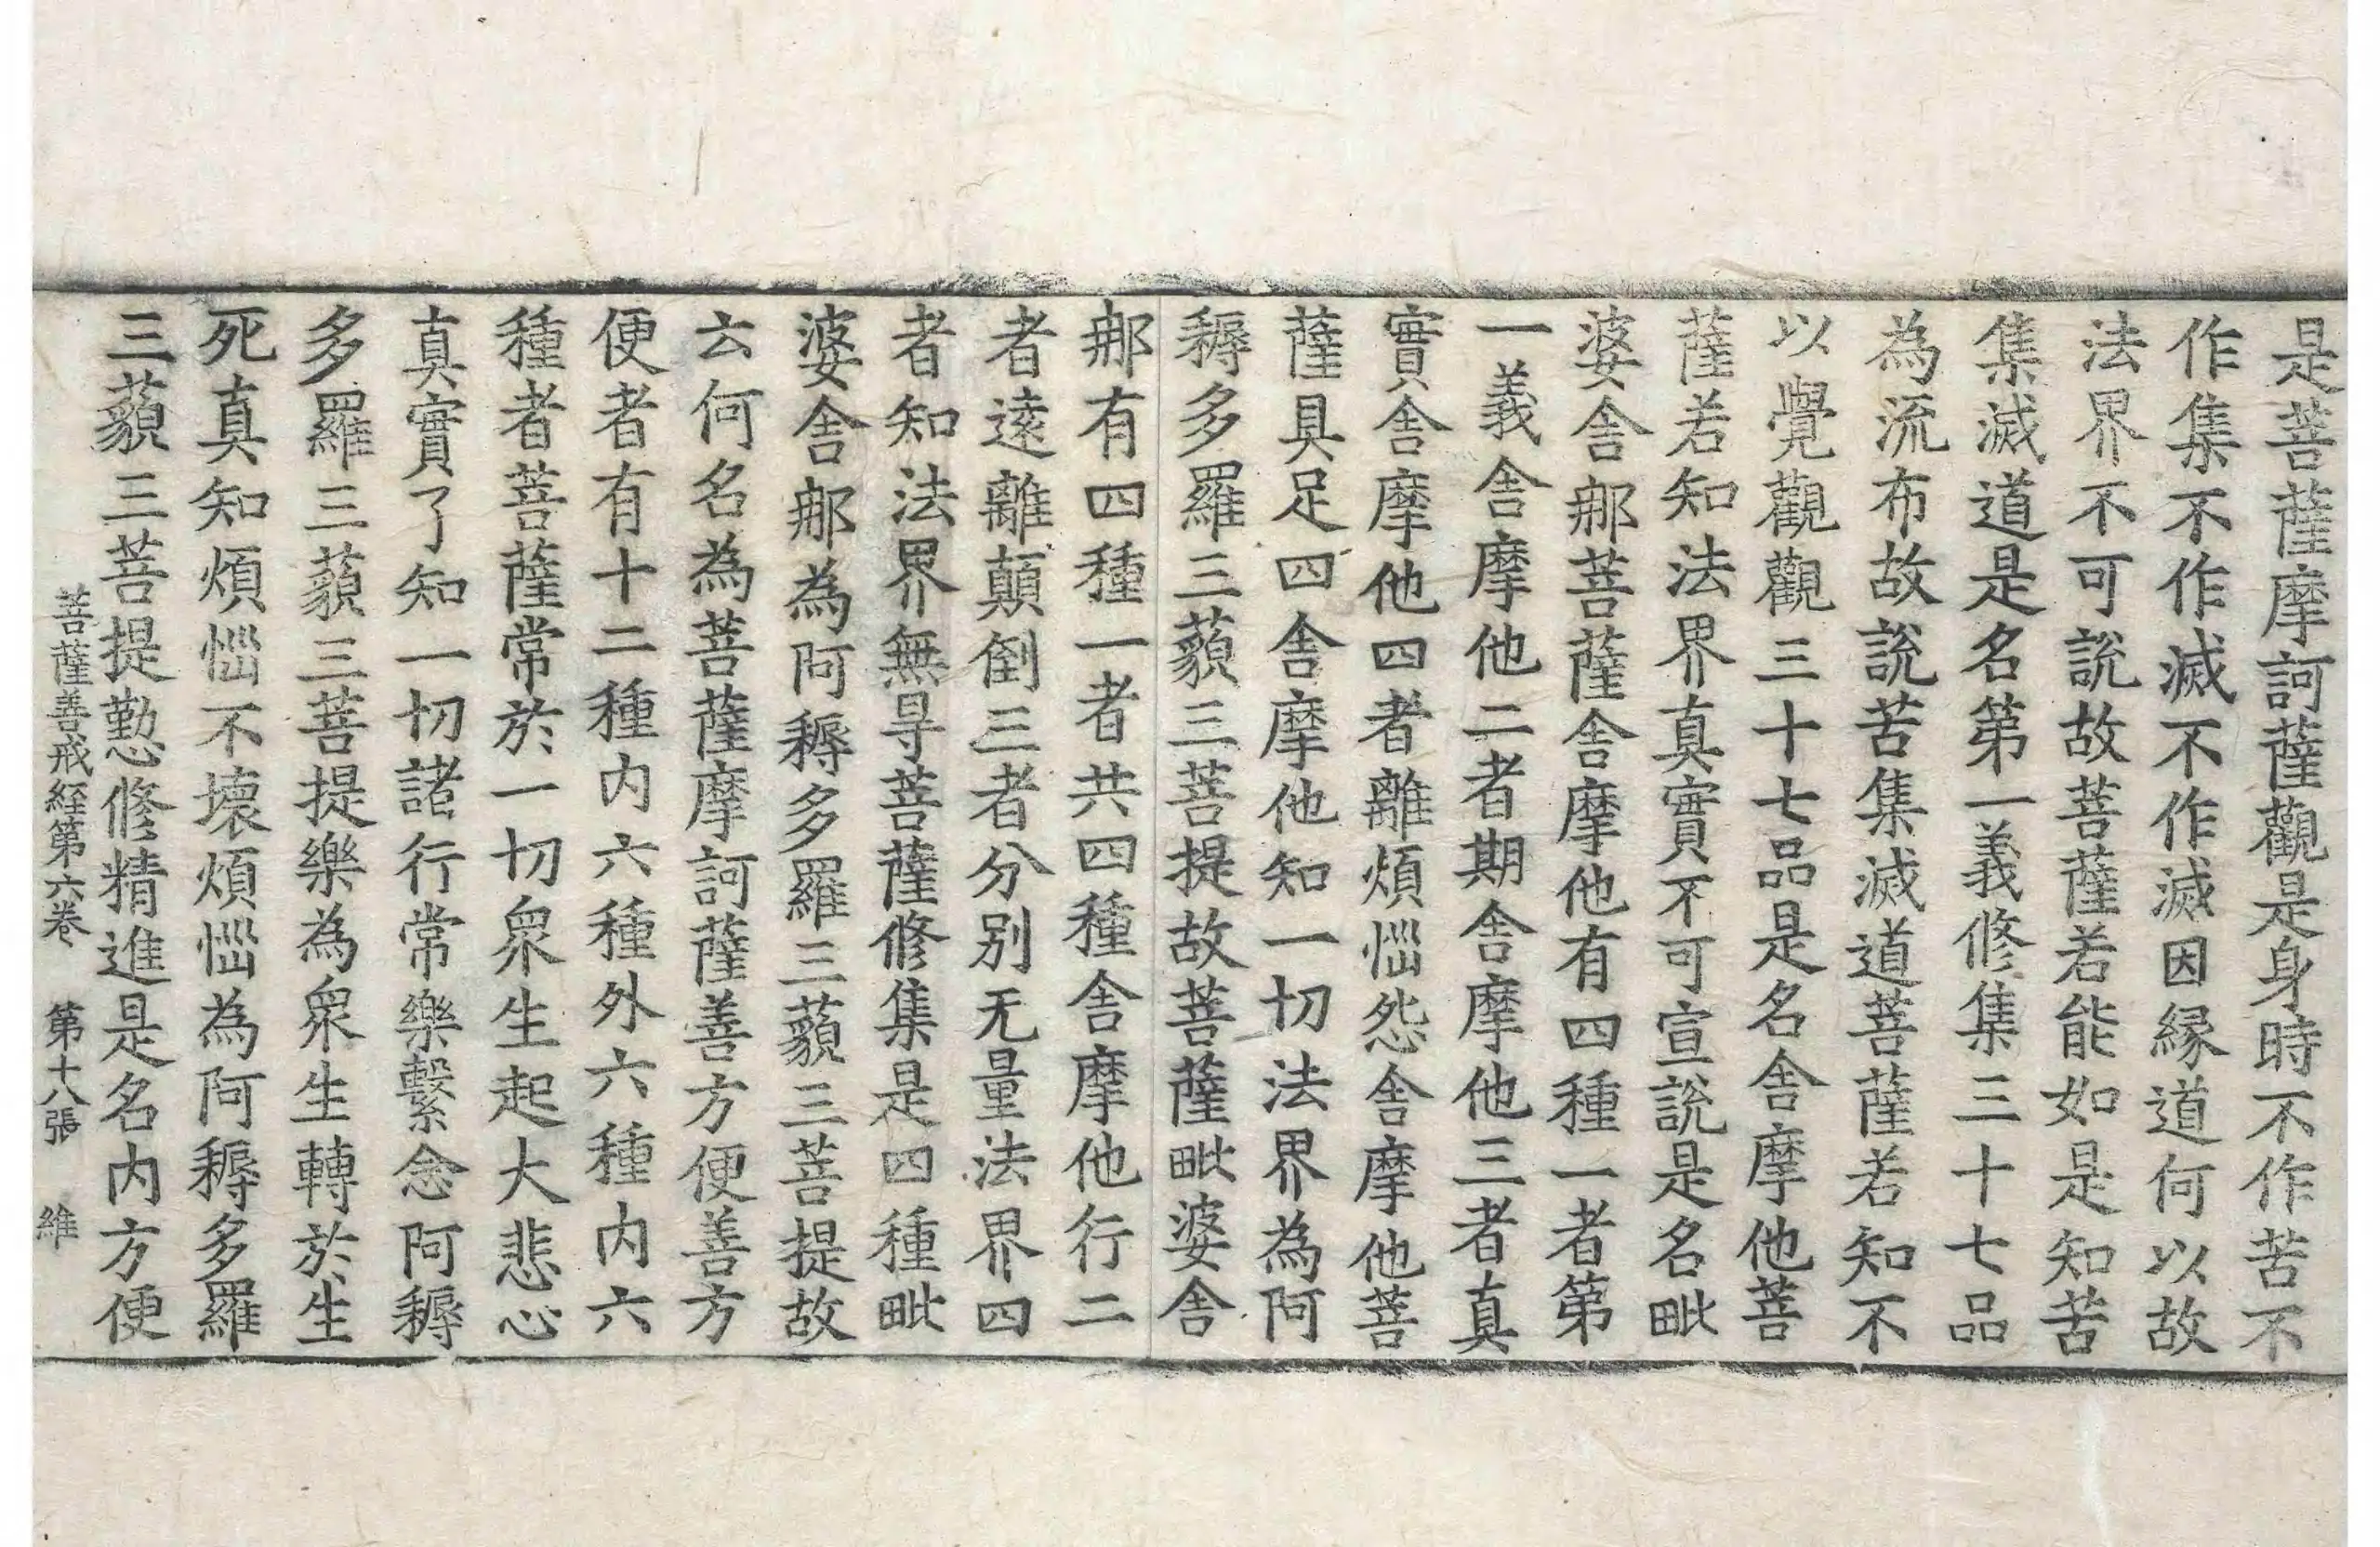 是菩薩摩訶薩觀是身時不作苦不
作集不作滅不作滅因緣道何以故
法界不可說故菩薩若能如是知苦
集滅道是名第一義修集三十七品
為流布故說苦集滅道菩薩若知不
以覺觀觀三十七品是名舍摩他菩
薩若知法界真實不可宣說是名毗
婆舍那菩薩舍摩他有四種一者第
一義舍摩他二者期舍摩他三者真
實舍摩他四者離煩惱怨舍摩他菩
薩具足四舍摩他知一切法界為阿
耨多羅三藐三菩提故菩薩毗婆舍
那有四種一者共四種舍摩他行二
者遠離顛倒三者分別无量法界四
者知法界無㝵菩薩修集是四種毗
婆舍那為阿耨多羅三藐三菩提故
云何名為菩薩摩訶薩善方便善方
便者有十二種內六種外六種內六
種者菩薩常於一切眾生起大悲心
真實了知一切諸行常樂繫念阿耨
多羅三藐三菩提樂為眾生轉於生
死真知煩惱不壞煩惱為阿耨多羅
三藐三菩提懃修精進是名內方便
菩薩善戒経第六卷 第十八張 維